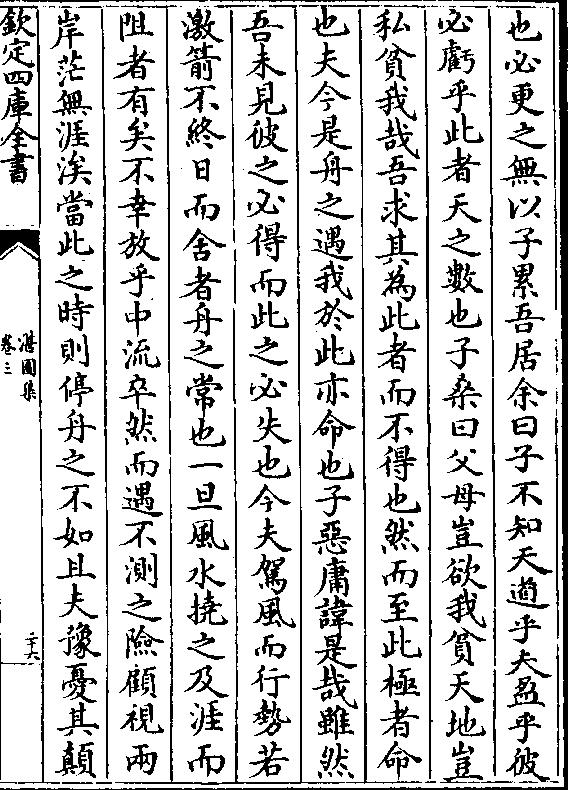 也必更之無以子累吾居余曰子不知天道乎夫盈乎彼
必虧乎此者天之數也子桑曰父母豈欲我貧天地豈
私貧我哉吾求其為此者而不得也然而至此極者命
也夫今是舟之遇我於此亦命也子惡庸諱是哉雖然
吾未見彼之必得而此之必失也今夫駕風而行勢若
激箭不終日而舍者舟之常也一旦風水撓之及涯而
阻者有矣不幸放乎中流卒然而遇不測之險顧視兩
岸茫無涯涘當此之時則停舟之不如且夫豫憂其顛
欽定四庫全書
湛園集
卷三
二十六